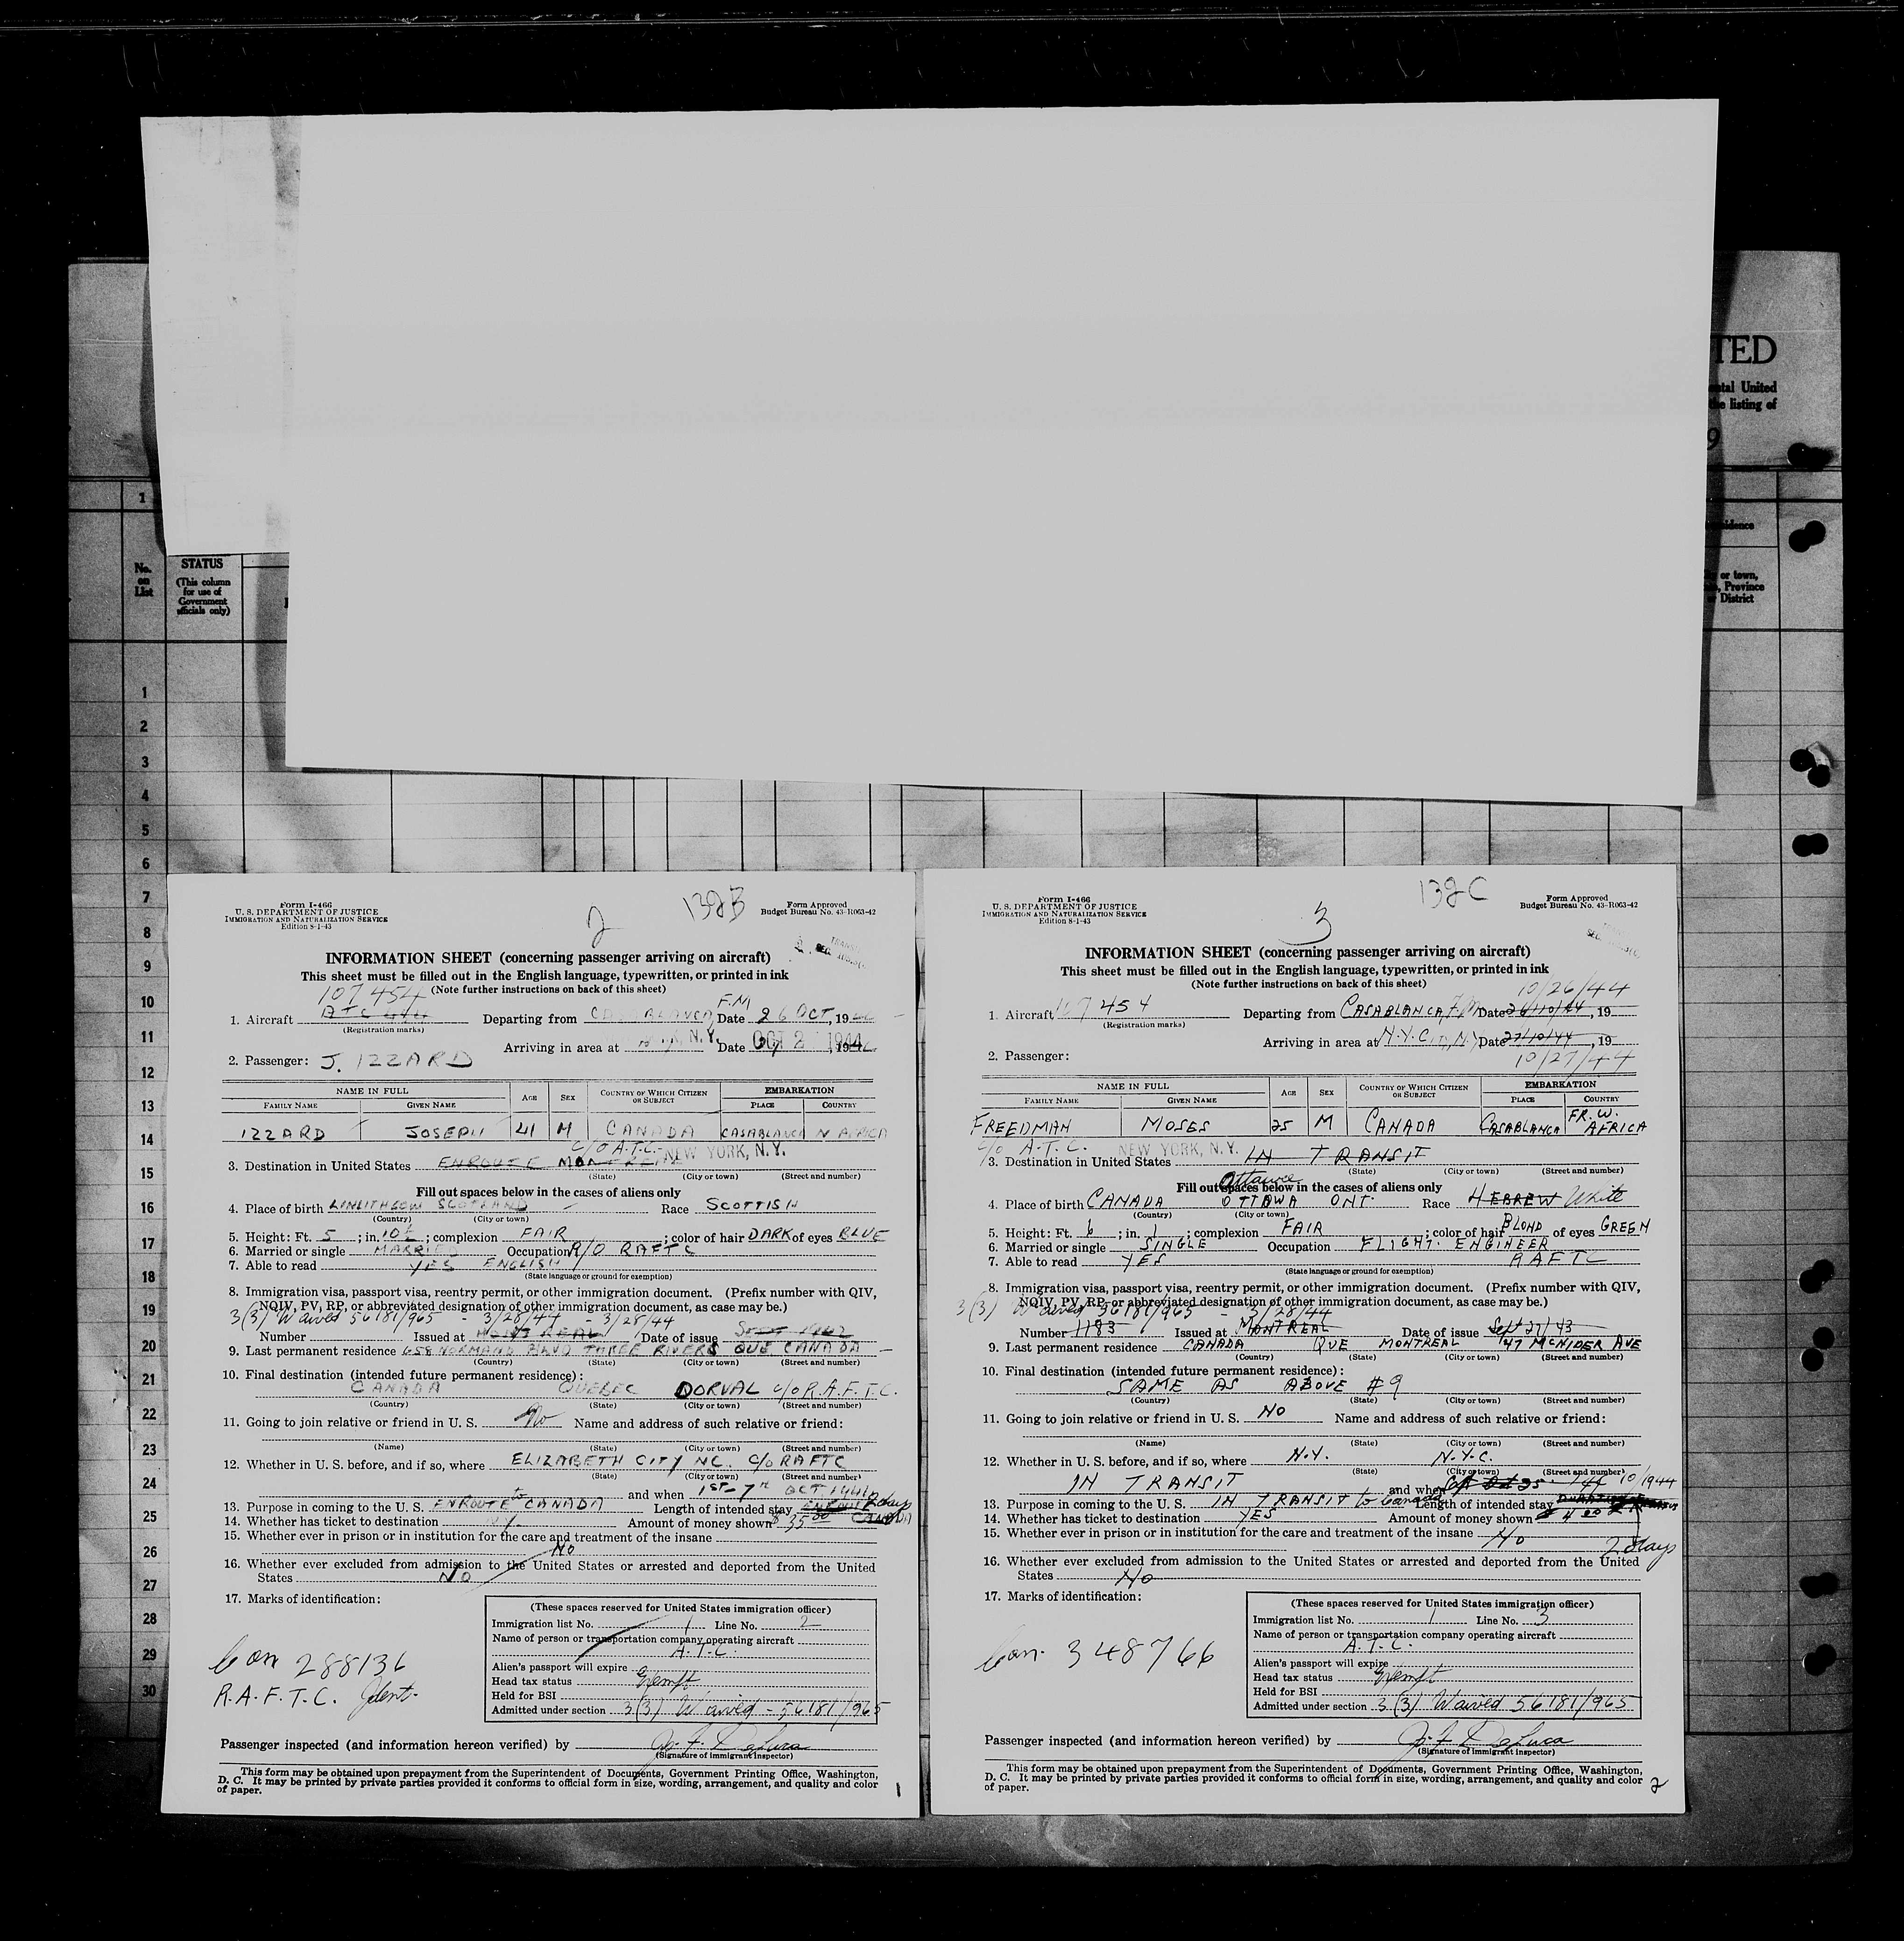 TED
ntal United
the listing of
9
1
idence
No.
on
List
STATUS
(This column
for use of
Government
officials only)
or town,
Province
District
1
2
3
4
5
6
7
8
9
10
11
12
13
14
15
16
17
18
19
20
21
22
23
24
25
26
27
28
29
30
Form I-466
U. S. DEPARTMENT OF JUSTICE
IMMIGRATION AND NATURALIZATION SERVICE
Edition 8-1-43
2
Form Approved
Budget Bureau No. 43-R063-42
INFORMATION SHEET (concerning passenger arriving on aircraft)
This sheet must be filled out in the English language, typewritten, or printed in ink
(Note further instructions on back of this sheet)
107454
1. Aircraft Departing from CASABLANCA F.M. Date 26 OCT, 19
(Registration marks)
Arriving in area at N.Y. Date OCT 2 1944
2. Passenger: J. IZZARD
NAME IN FULL AGE SEX COUNTRY OF WHICH CITIZEN OR SUBJECT EMBARKATION
FAMILY NAME GIVEN NAME PLACE COUNTRY
IZZARD JOSEPH 41 M CANADA CASABLANCA N AFRICA
c/o A.T.C. NEW YORK, N.Y.
3. Destination in United States ENROUTE MONTREAL
(State) (City or town) (Street and number)
Fill out spaces below in the cases of aliens only
4. Place of birth LINLITHGOW SCOTLAND Race SCOTTISH
(Country) (City or town)
5. Height: Ft. 5; in. 10½; complexion FAIR; color of hair DARK of eyes BLUE
6. Married or single MARRIED Occupation R/O RAFTC
7. Able to read YES ENGLISH
(State language or ground for exemption)
8. Immigration visa, passport visa, reentry permit, or other immigration document. (Prefix number with QIV,
NQIV, PV, RP, or abbreviated designation of other immigration document, as case may be.)
3(3) Waived 56181/965 - 3/28/44 - 3/28/44
Number Issued at MONTREAL Date of issue SEPT 1942
9. Last permanent residence 658 NORMAND BLVD THREE RIVERS QUE CANADA
(Country) (State) (City or town) (Street and number)
10. Final destination (intended future permanent residence):
CANADA QUEBEC DORVAL c/o R.A.F.T.C.
(Country) (State) (City or town) (Street and number)
11. Going to join relative or friend in U. S. No Name and address of such relative or friend:
(Name) (State) (City or town) (Street and number)
12. Whether in U. S. before, and if so, where ELIZABETH CITY NC. c/o RAFTC
(State) (City or town) (Street and number)
and when 1ST-7TH OCT. 1944
13. Purpose in coming to the U. S. ENROUTE to CANADA Length of intended stay 2 days
14. Whether has ticket to destination N.Y. Amount of money shown $35.00
15. Whether ever in prison or in institution for the care and treatment of the insane
No
16. Whether ever excluded from admission to the United States or arrested and deported from the United
States No
17. Marks of identification:
Can 288136
R.A.F.T.C. Ident.
(These spaces reserved for United States immigration officer)
Immigration list No. 1 Line No. 2
Name of person or transportation company operating aircraft
A.T.C.
Alien's passport will expire
Head tax status Exempt
Held for BSI
Admitted under section 3(3) Waived - 56181/965
Passenger inspected (and information hereon verified) by J. F. DeLuca
(Signature of immigrant inspector)
This form may be obtained upon prepayment from the Superintendent of Documents, Government Printing Office, Washington,
D. C. It may be printed by private parties provided it conforms to official form in size, wording, arrangement, and quality and color
of paper.
1
Form I-466
U. S. DEPARTMENT OF JUSTICE
IMMIGRATION AND NATURALIZATION SERVICE
Edition 8-1-43
3
Form Approved
Budget Bureau No. 43-R063-42
INFORMATION SHEET (concerning passenger arriving on aircraft)
This sheet must be filled out in the English language, typewritten, or printed in ink
(Note further instructions on back of this sheet)
10/26/44
1. Aircraft 107454 Departing from CASABLANCA, F.M. Date 26/10/44, 19
(Registration marks)
Arriving in area at N.Y. CITY, N.Y. Date 27/10/44, 19
10/27/44
2. Passenger:
NAME IN FULL AGE SEX COUNTRY OF WHICH CITIZEN OR SUBJECT EMBARKATION
FAMILY NAME GIVEN NAME PLACE COUNTRY
FREEDMAN MOSES 25 M CANADA CASABLANCA FR. W. AFRICA
c/o A.T.C. NEW YORK, N.Y.
3. Destination in United States IN TRANSIT
(State) (City or town) (Street and number)
Ottawa
Fill out spaces below in the cases of aliens only
4. Place of birth CANADA OTTAWA ONT. Race HEBREW White
(Country) (City or town)
5. Height: Ft. 6; in. 1; complexion FAIR; color of hair BLOND of eyes GREEN
6. Married or single SINGLE Occupation FLIGHT ENGINEER
7. Able to read YES RAFTC
(State language or ground for exemption)
8. Immigration visa, passport visa, reentry permit, or other immigration document. (Prefix number with QIV,
NQIV, PV, RP, or abbreviated designation of other immigration document, as case may be.)
3(3) Waived 56181/965 - 3/28/44
Number 1183 Issued at MONTREAL Date of issue Sept 27/43
9. Last permanent residence CANADA QUE MONTREAL 47 MCNIDER AVE
(Country) (State) (City or town) (Street and number)
10. Final destination (intended future permanent residence):
SAME AS ABOVE #9
(Country) (State) (City or town) (Street and number)
11. Going to join relative or friend in U. S. NO Name and address of such relative or friend:
(Name) (State) (City or town) (Street and number)
12. Whether in U. S. before, and if so, where N.Y. N.Y.C.
(State) (City or town) (Street and number)
IN TRANSIT and when 10/1944
13. Purpose in coming to the U. S. IN TRANSIT to Canada Length of intended stay
14. Whether has ticket to destination YES Amount of money shown
15. Whether ever in prison or in institution for the care and treatment of the insane
No 2 days
16. Whether ever excluded from admission to the United States or arrested and deported from the United
States No
17. Marks of identification:
Can. 348766
(These spaces reserved for United States immigration officer)
Immigration list No. 1 Line No. 3
Name of person or transportation company operating aircraft
A.T.C.
Alien's passport will expire
Head tax status Exempt
Held for BSI
Admitted under section 3(3) Waived 56181/965
Passenger inspected (and information hereon verified) by J. F. DeLuca
(Signature of immigrant inspector)
This form may be obtained upon prepayment from the Superintendent of Documents, Government Printing Office, Washington,
D. C. It may be printed by private parties provided it conforms to official form in size, wording, arrangement, and quality and color
of paper.
2